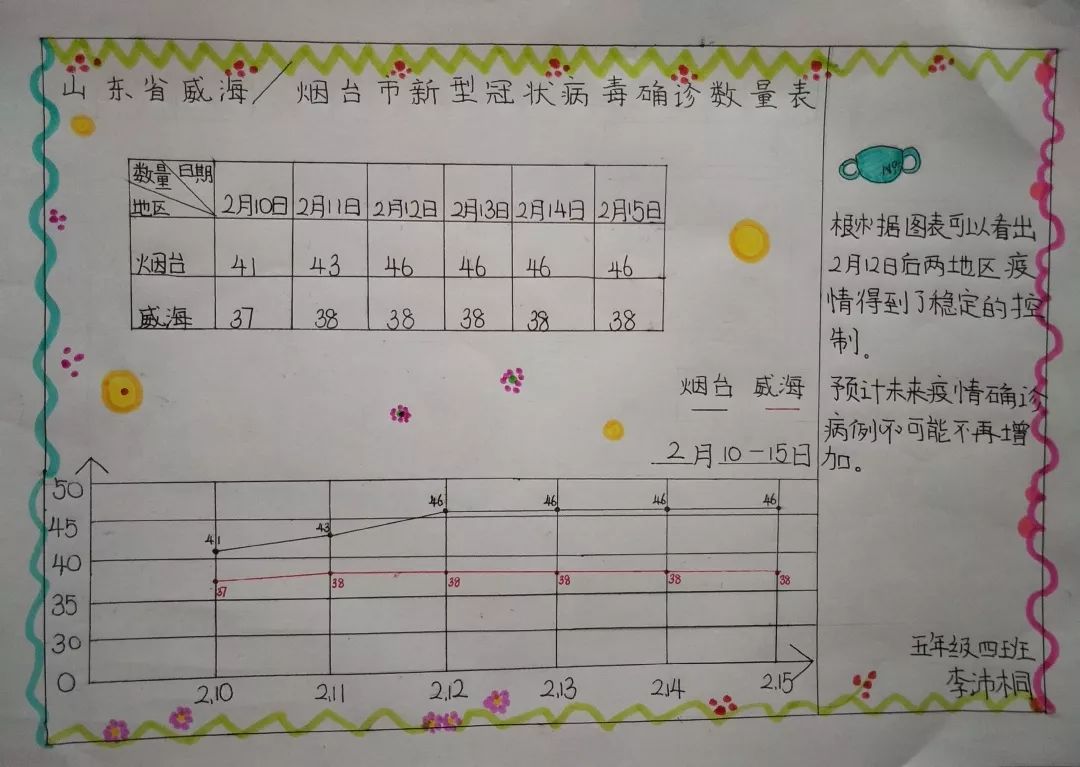 山东省威海/烟台市新型冠状病毒确诊数量表
数量 日期
地区 2月10日 2月11日 2月12日 2月13日 2月14日 2月15日
烟台 41 43 46 46 46 46
威海 37 38 38 38 38 38
烟台 威海
2月10-15日
50
45
40
35
30
0
41 43 46 46 46 46
37 38 38 38 38 38
2.10 2.11 2.12 2.13 2.14 2.15
N95
根据图表可以看出
2月12日后两地区疫
情得到了稳定的控
制。
预计未来疫情确诊
病例不可能不再增
加。
五年级四班
李沛桐